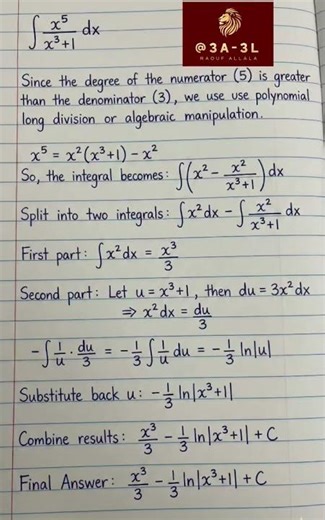 ∫ x⁵/(x³+1) dx
@3A-3L
RAOUF ALLALA
Since the degree of the numerator (5) is greater
than the denominator (3), we use use polynomial
long division or algebraic manipulation.
x⁵ = x²(x³+1) − x²
So, the integral becomes: ∫(x² − x²/(x³+1)) dx
Split into two integrals: ∫x² dx − ∫ x²/(x³+1) dx
First part: ∫x² dx = x³/3
Second part: Let u = x³+1, then du = 3x² dx
⇒ x² dx = du/3
−∫ 1/u · du/3 = −1/3 ∫ 1/u du = −1/3 ln|u|
Substitute back u: −1/3 ln|x³+1|
Combine results: x³/3 − 1/3 ln|x³+1| + C
Final Answer: x³/3 − 1/3 ln|x³+1| + C